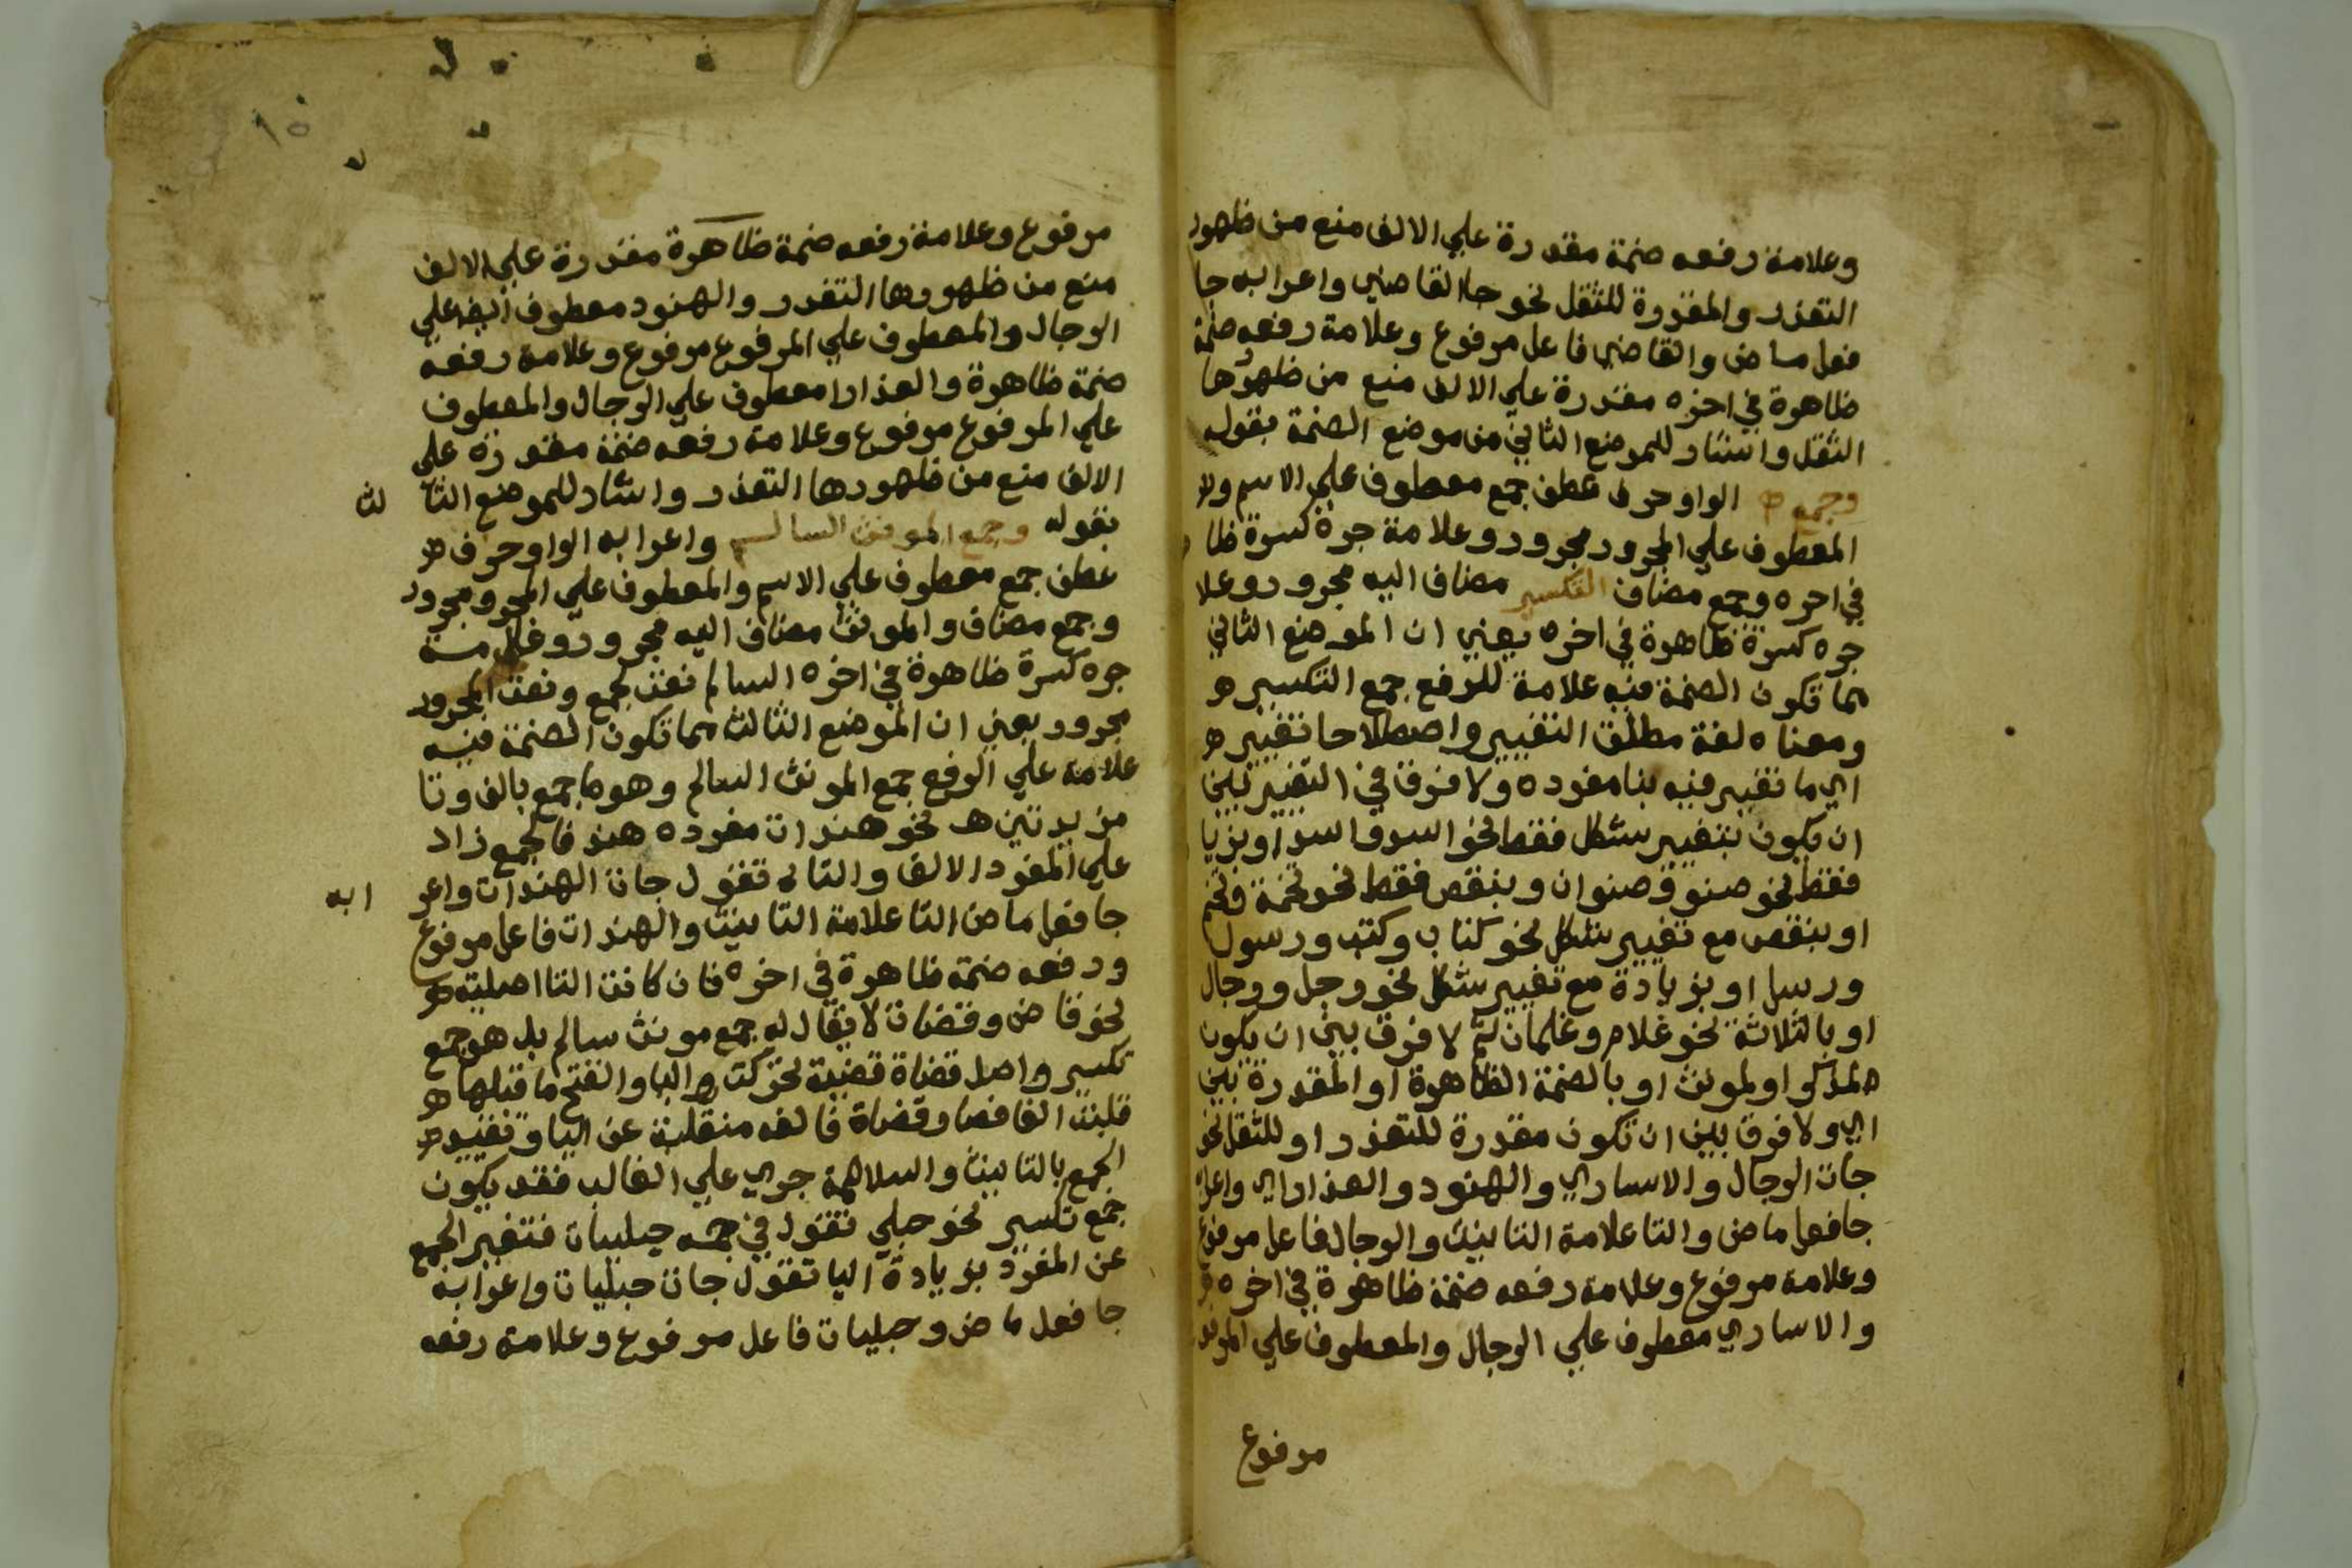 وعلامة رفعه ضمة مقدرة علي الالف منع من ظهور
التعذر والمقدرة للثقل نحو جا القاضي واعرابه جا
فعل ماض والقاضي فاعل مرفوع وعلامة رفعه ضمة
ظاهرة في اخره مقدرة علي الالف منع من ظهورها
الثقل واشار للموضع الثاني من موضع الضمة بقوله
وجمع الواو حرف عطف جمع معطوف علي الاسم و
المعطوف علي المجرور مجرور وعلامة جره كسرة ظا
في اخره وجمع مضاف التكسير مضاف اليه مجرور وعلا
جره كسرة ظاهرة في اخره يعني ان الموضع الثاني
مما تكون الضمة فيه علامة للرفع جمع التكسير
ومعناه لغة مطلق التغيير واصطلاحا تغيير
اي ما تغير فيه بنا مفرده ولا فرق في التغيير بين
ان يكون بتغيير شكل فقط نحو اسد واسد او بزيا
فقط نحو صنو وصنوان وبنقص فقط نحو تخمة وتخم
او بنقص مع تغيير شكل نحو كتاب وكتب ورسول
ورسل او بزيادة مع تغيير شكل نحو رجل ورجال
او بالثلاثة نحو غلام وغلمان ثم لا فرق بين ان يكون
لمذكر او لمونث او بالضمة الظاهرة او المقدرة بين
اي ولا فرق بين ان تكون مقدرة للتعذر او للثقل نحو
جات الرجال والاساري والهنود والعذاراي واعرابه
جا فعل ماض والتا علامة التانيث والرجال فاعل مرفوع
وعلامة مرفوع وعلامة رفعه ضمة ظاهرة في اخره
والاساري معطوف علي الرجال والمعطوف علي المرفو
مرفوع
مرفوع وعلامة رفعه ضمة ظاهرة مقدرة علي الالف
منع من ظهورها التعذر والهنود معطوف ايضا علي
الرجال والمعطوف علي المرفوع مرفوع وعلامة رفعه
ضمة ظاهرة والعذارا معطوف علي الرجال والمعطوف
علي المرفوع مرفوع وعلامة رفعه ضمة مقدرة علي
الالف منع من ظهورها التعذر واشار للموضع الثا لث
بقوله وجمع المونث السالم واعرابه الواو حرف
عطف جمع معطوف علي الاسم والمعطوف علي المجرو مجرور
وجمع مضاف والمونث مضاف اليه مجرور وعلامة
جره كسرة ظاهرة في اخره السالم نعت لجمع ونعت المجرور
مجرور يعني ان الموضع الثالث مما تكون الضمة فيه
علامة علي الرفع جمع المونث السالم وهو ما جمع بالف وتا
مزيدتين نحو هندات مفرده هند فالجمع زاد
علي المفرد الالف والتا تقول جات الهندات واعر ابه
جا فعل ماض التا علامة التانيث والهندات فاعل مرفوع
ورفعه ضمة ظاهرة في اخره فان كانت التا اصلية
نحو قاض وقضات لا يقال له جمع مونث سالم بل هو جمع
تكسير واصل قضاة قضية تحركت اليا وانفتح ما قبلها
قلبت الفا فصار قضاة فالفه منقلبة عن اليا وتقييد
الجمع بالتانيث والسلامة جري علي الغالب فقد يكون
جمع تكسير نحو حبلي تقول في جمعه حبليات فتغير الجمع
عن المفرد بزيادة اليا تقول جات حبليات واعرابه
جا فعل ماض وحبليات فاعل مرفوع وعلامة رفعه